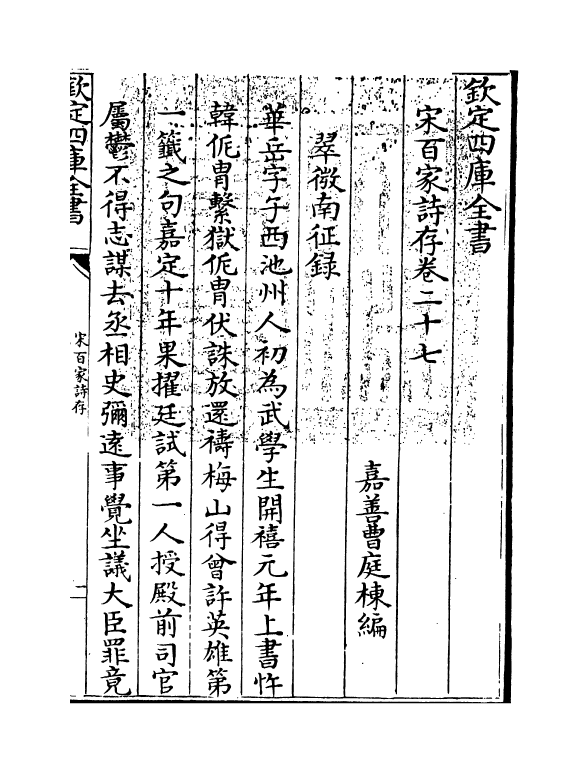 欽定四庫全書
宋百家詩存卷二十七
嘉善曹庭棟編
翠微南征録
華岳字子西池州人初為武學生開禧元年上書忤
韓侂胄繫獄侂胄伏誅放還禱梅山得曾許英雄第
一籤之句嘉定十年果擢廷試第一人授殿前司官
屬鬱不得志謀去丞相史彌遠事覺坐議大臣罪竟
欽定四庫全書
宋百家詩存
一